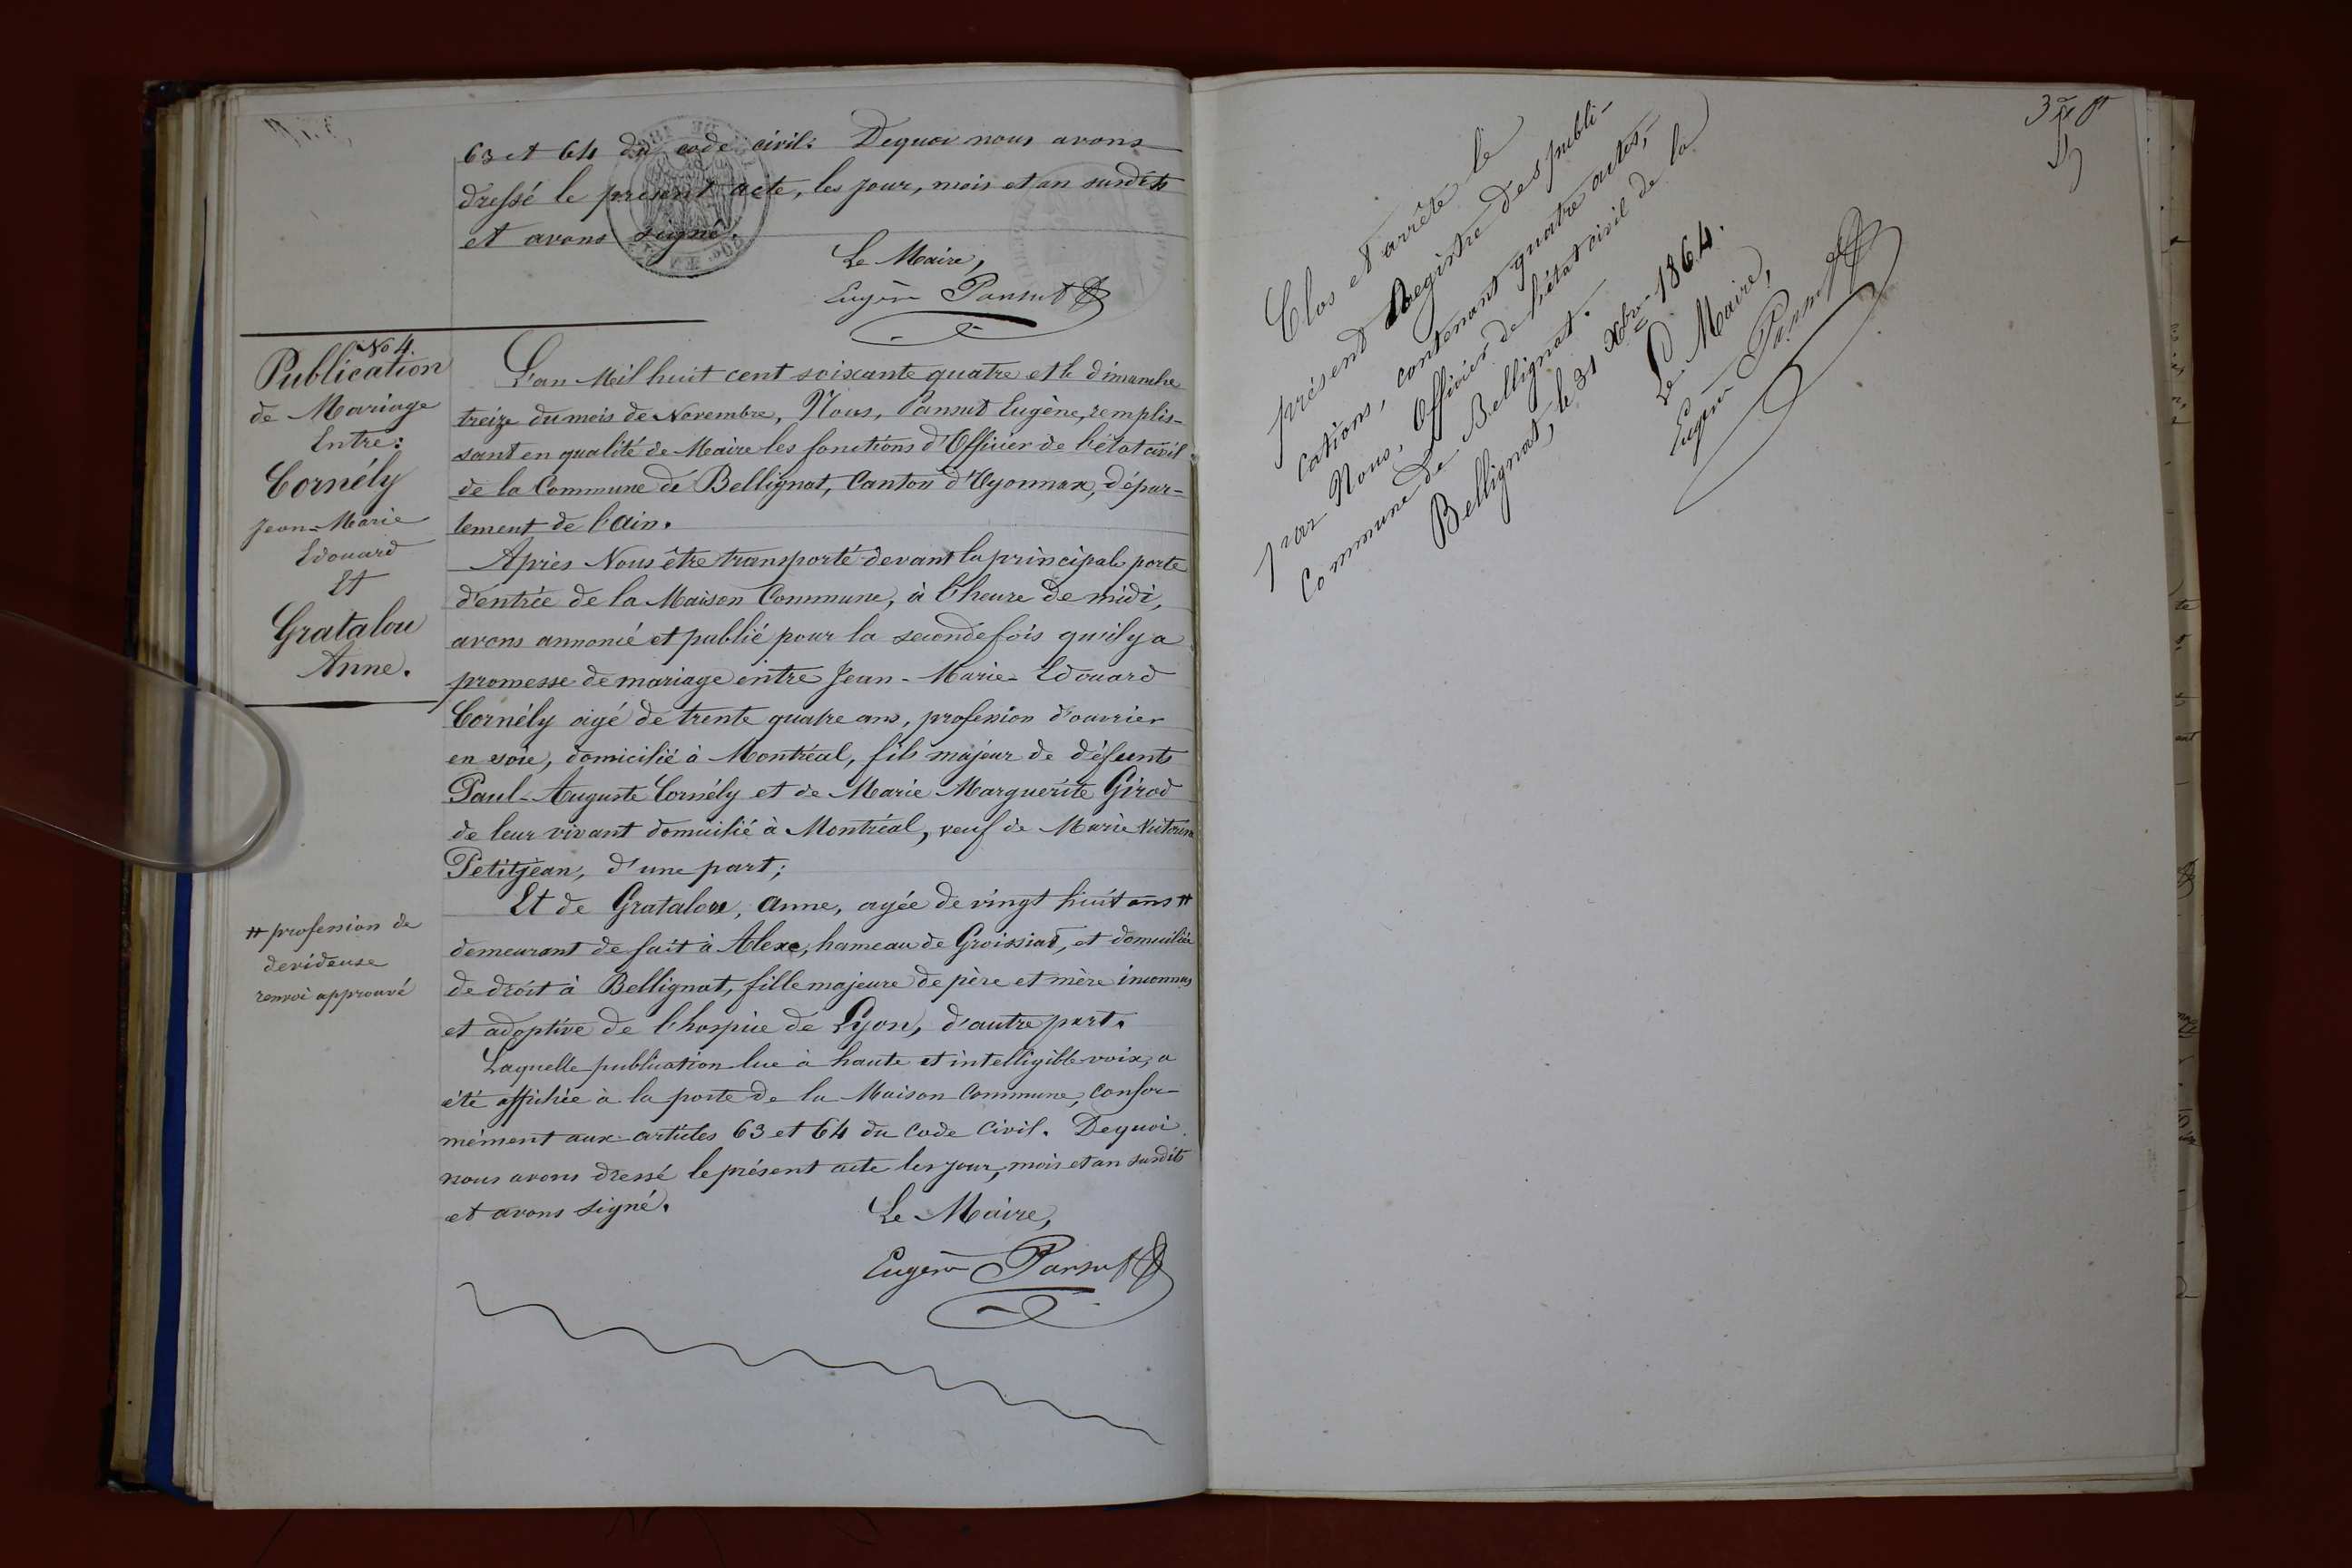 63 et 64 du code civil. Dequoi nous avons
dressé le présent acte, les jour, mois et an susdits
et avons signé.
Le Maire,
Eugène Pansut
No 4.
Publication
de Mariage
Entre:
Cornély
Jean-Marie
Edouard
Et
Gratalou
Anne.
L'an Mil huit cent soixante quatre et le dimanche
treize du mois de Novembre, Nous, Pansut Eugène, remplis-
sant en qualité de Maire les fonctions d'Officier de l'état civil
de la Commune de Bellignat, Canton d'Oyonnax, dépar-
tement de l'Ain.
Après Nous être transporté devant la principale porte
d'entrée de la Maison Commune, à l'heure de midi,
avons annoncé et publié pour la seconde fois qu'il y a
promesse de mariage entre Jean-Marie-Edouard
Cornély agé de trente quatre ans, profession d'ouvrier
en soie, domicilié à Montréal, fils majeur de défunts
Paul-Auguste Cornély et de Marie Marguerite Girod
de leur vivant domicilié à Montréal, veuf de Marie
Petitjean, d'une part;
Et de Gratalou, Anne, agée de vingt huit ans #
# profession de
devideuse
renvoi approuvé
demeurant de fait à Alexe, hameau de Groissiat, et domiciliée
de droit à Bellignat, fille majeure de père et mère inconnus
et adoptive de l'hospice de Lyon, d'autre part.
Laquelle publication lue à haute et intelligible voix, a
été affichée à la porte de la Maison Commune, confor-
mément aux articles 63 et 64 du Code Civil. Dequoi
nous avons dressé le présent acte les jour, mois et an susdits
et avons signé.
Le Maire,
Eugène Pansut
Clos et arrêté le
présent Registre des publi-
cations, contenant quatre actes,
par Nous, Officier de l'état civil de la
Commune de Bellignat.
Bellignat, le 31 Xbre 1864.
Le Maire,
Eugène Pansut